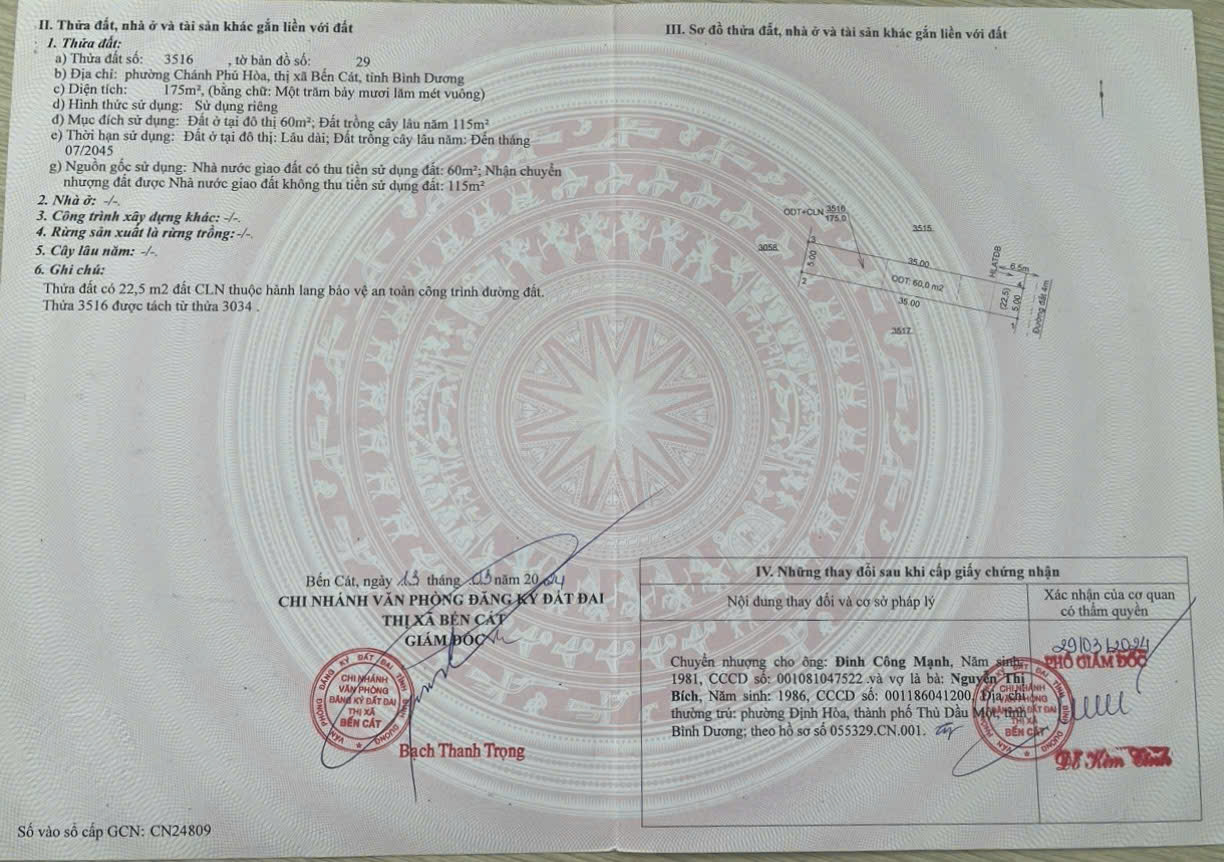 II. Thửa đất, nhà ở và tài sản khác gắn liền với đất
1. Thửa đất:
a) Thửa đất số: 3516 , tờ bản đồ số: 29
b) Địa chỉ: phường Chánh Phú Hòa, thị xã Bến Cát, tỉnh Bình Dương
c) Diện tích: 175m², (bằng chữ: Một trăm bảy mươi lăm mét vuông)
d) Hình thức sử dụng: Sử dụng riêng
đ) Mục đích sử dụng: Đất ở tại đô thị 60m²; Đất trồng cây lâu năm 115m²
e) Thời hạn sử dụng: Đất ở tại đô thị: Lâu dài; Đất trồng cây lâu năm: Đến tháng
07/2045
g) Nguồn gốc sử dụng: Nhà nước giao đất có thu tiền sử dụng đất: 60m²; Nhận chuyển
nhượng đất được Nhà nước giao đất không thu tiền sử dụng đất: 115m²
2. Nhà ở: -/-.
3. Công trình xây dựng khác: -/-.
4. Rừng sản xuất là rừng trồng: -/-.
5. Cây lâu năm: -/-.
6. Ghi chú:
Thửa đất có 22,5 m2 đất CLN thuộc hành lang bảo vệ an toàn công trình đường đất.
Thửa 3516 được tách từ thửa 3034 .
Bến Cát, ngày 13 tháng 03 năm 2024
CHI NHÁNH VĂN PHÒNG ĐĂNG KÝ ĐẤT ĐAI
THỊ XÃ BẾN CÁT
GIÁM ĐỐC
VĂN PHÒNG ĐĂNG KÝ ĐẤT ĐAI TỈNH BÌNH DƯƠNG
CHI NHÁNH
VĂN PHÒNG
ĐĂNG KÝ ĐẤT ĐAI
THỊ XÃ
BẾN CÁT
Bạch Thanh Trọng
Số vào sổ cấp GCN: CN24809
III. Sơ đồ thửa đất, nhà ở và tài sản khác gắn liền với đất
ODT+CLN 3516
175,0
3515
3058
3
5.00
2
35.00
ODT: 60,0 m2
35.00
HLATĐB
6.5m
(22,5)
5.00
Đường đất 4m
3517
IV. Những thay đổi sau khi cấp giấy chứng nhận
Nội dung thay đổi và cơ sở pháp lý
Xác nhận của cơ quan
có thẩm quyền
Chuyển nhượng cho ông: Đinh Công Mạnh, Năm sinh:
1981, CCCD số: 001081047522 và vợ là bà: Nguyễn Thị
Bích, Năm sinh: 1986, CCCD số: 001186041200, Địa chỉ
thường trú: phường Định Hòa, thành phố Thủ Dầu Một, tỉnh
Bình Dương; theo hồ sơ số 055329.CN.001.
29/03/2024
PHÓ GIÁM ĐỐC
VĂN PHÒNG ĐĂNG KÝ ĐẤT ĐAI TỈNH BÌNH DƯƠNG
CHI NHÁNH
VĂN PHÒNG
ĐĂNG KÝ ĐẤT ĐAI
THỊ XÃ
BẾN CÁT